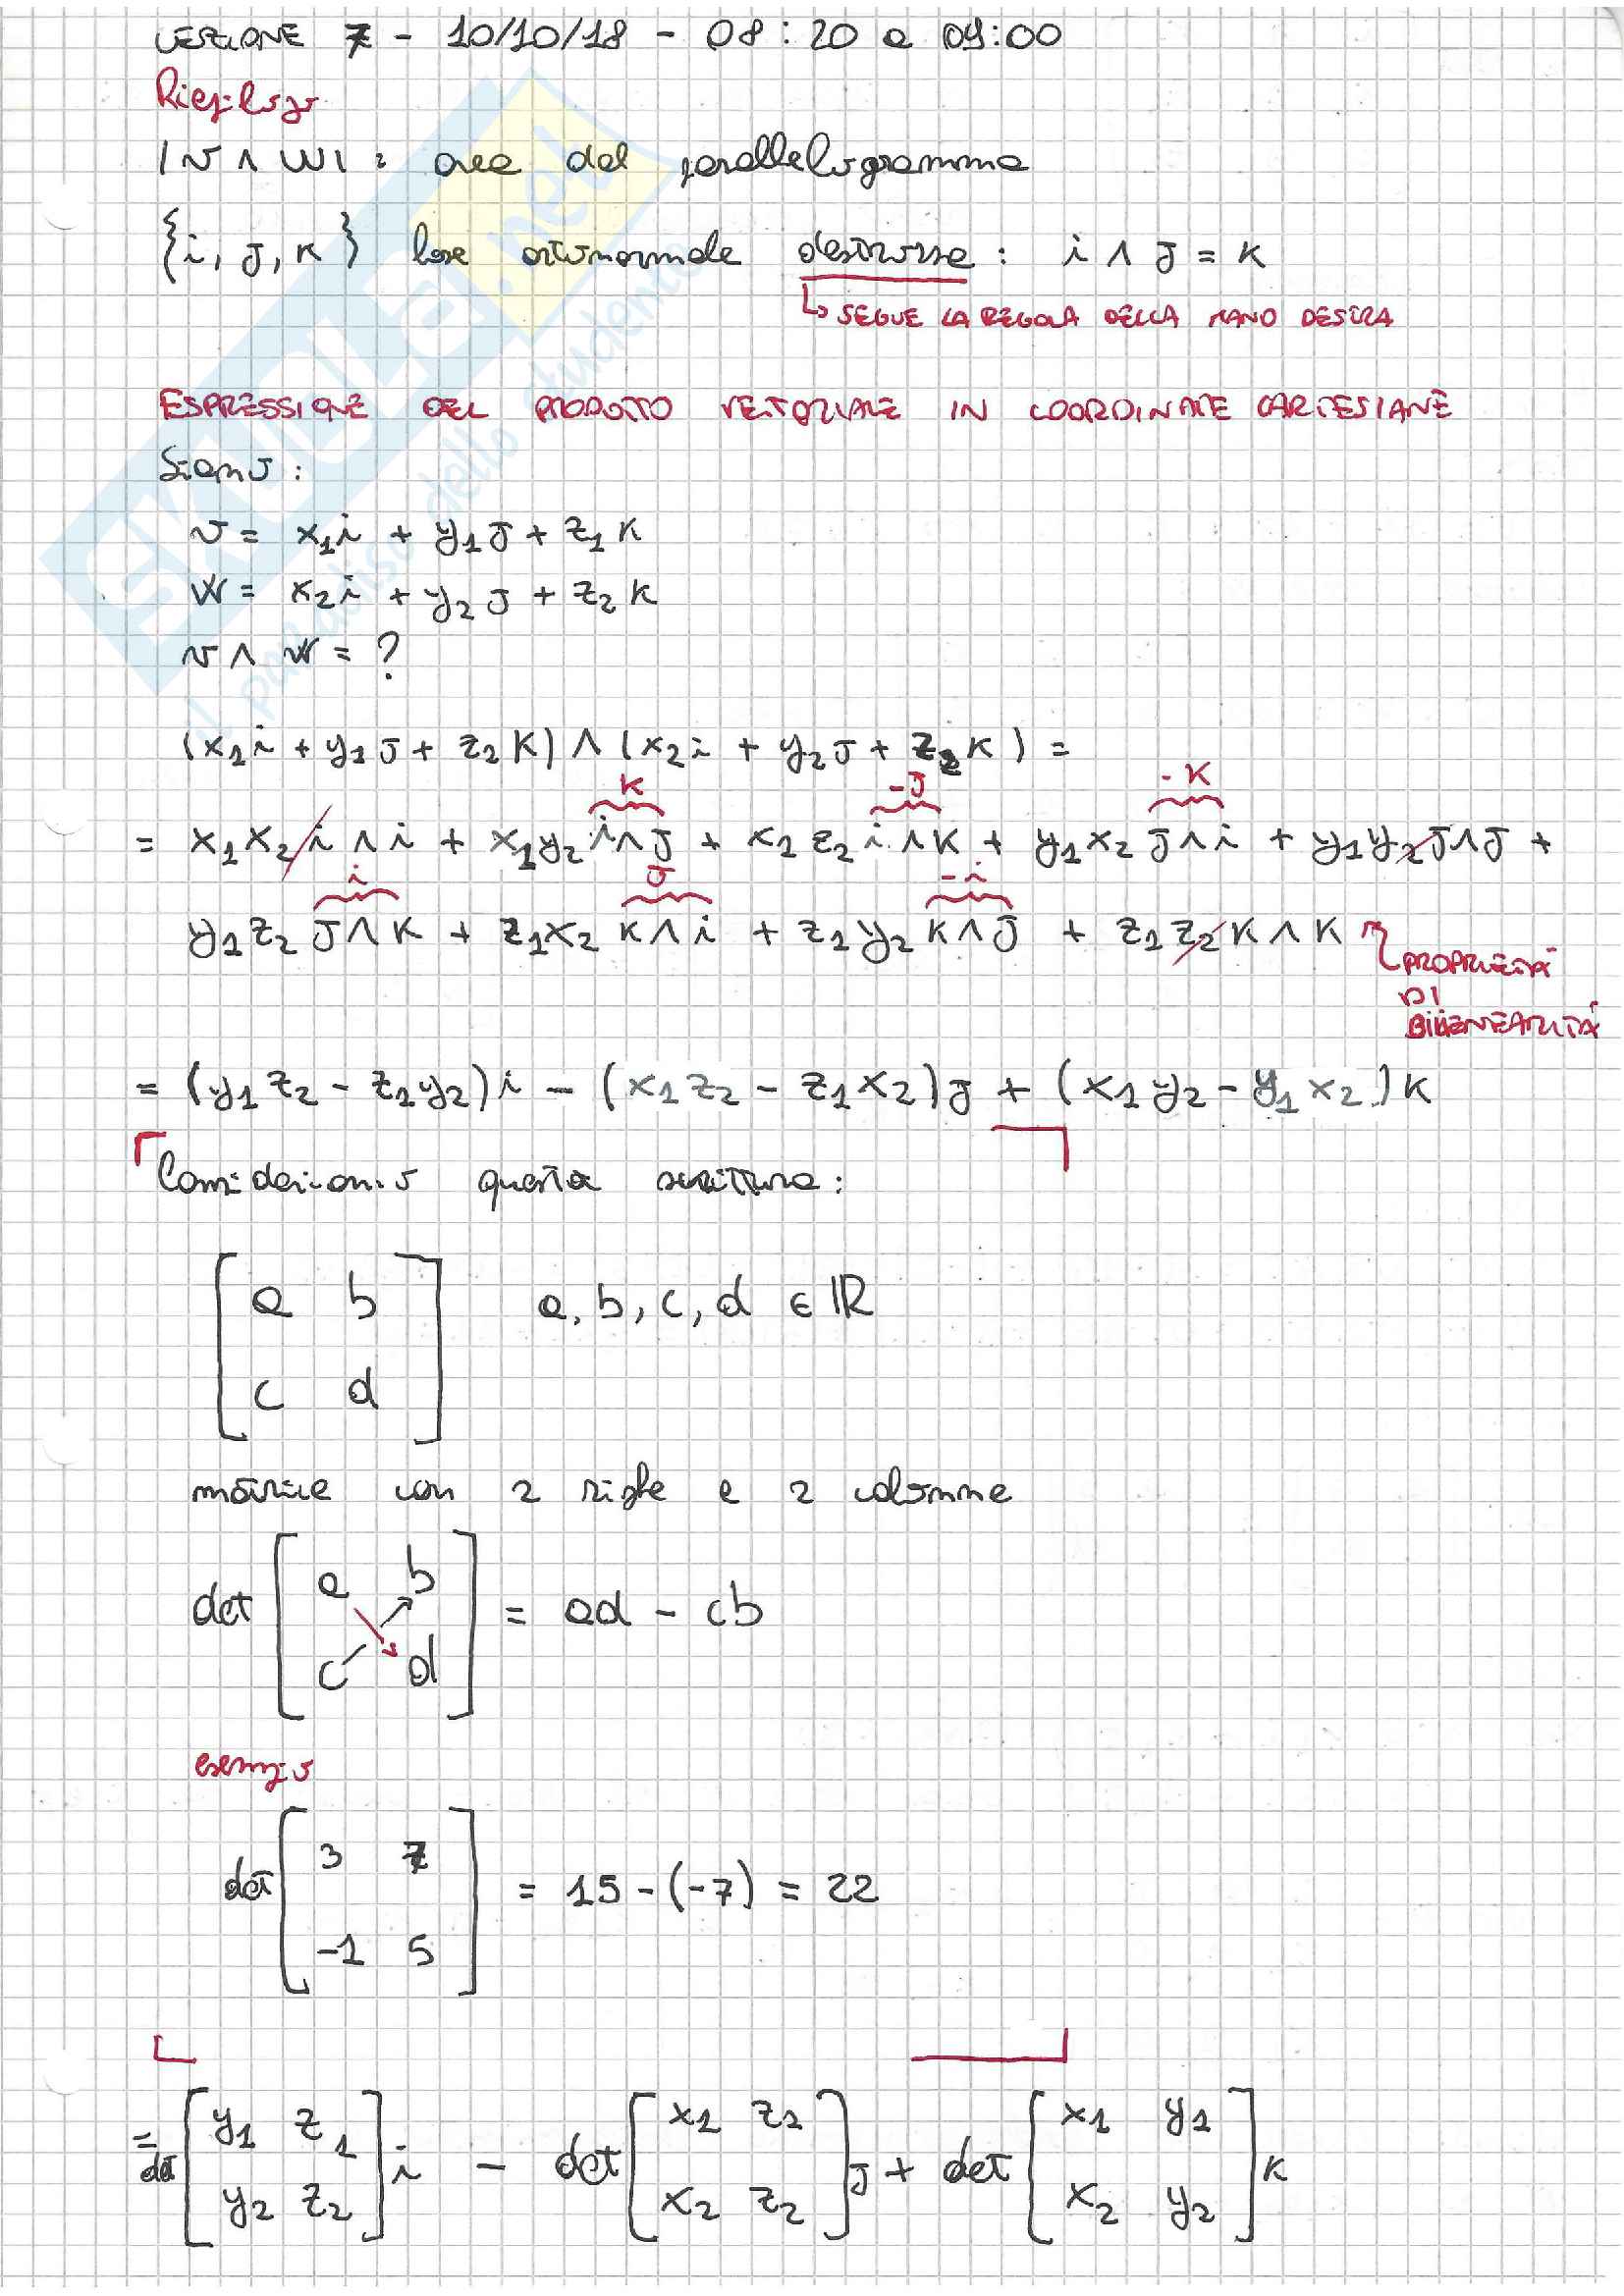 LEZIONE 7 - 10/10/18 - 08:20 a 09:00
Riepilogo
|v ∧ w| : area del parallelogramma
{i, J, K} base ortonormale destrorsa : i ∧ J = K
↳ SEGUE LA REGOLA DELLA MANO DESTRA
ESPRESSIONE DEL PRODOTTO VETTORIALE IN COORDINATE CARTESIANE
Siano :
v = x₁i + y₁J + z₁K
w = x₂i + y₂J + z₂K
v ∧ w = ?
(x₁i + y₁J + z₁K) ∧ (x₂i + y₂J + z₂K) =
K -J -K
= x₁x₂ i∧i + x₁y₂ i∧J + x₁z₂ i∧K + y₁x₂ J∧i + y₁y₂ J∧J +
i J -i
y₁z₂ J∧K + z₁x₂ K∧i + z₁y₂ K∧J + z₁z₂ K∧K
PROPRIETÀ
DI
BILINEARITÀ
= (y₁z₂ - z₁y₂)i - (x₁z₂ - z₁x₂)J + (x₁y₂ - y₁x₂)K
Consideriamo questa scrittura :
[a b
c d] a, b, c, d ∈ ℝ
matrice con 2 righe e 2 colonne
det [a b
c d] = ad - cb
esempio
det [3 7
-1 5] = 15 - (-7) = 22
= det [y₁ z₁
y₂ z₂] i - det [x₁ z₁
x₂ z₂] J + det [x₁ y₁
x₂ y₂] K
SKUOLA.net
il paradiso dello studente